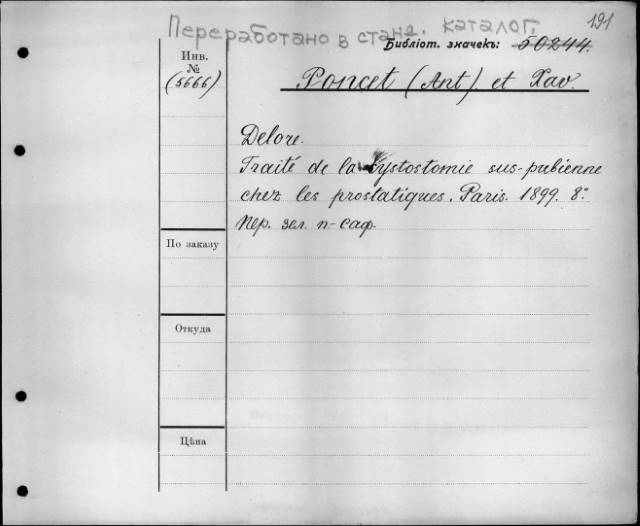 Переработано в станд. каталог.
191
Библіот. значекъ: 50244.
Инв.
№
(5666)
Poncet (Ant) et Xav.
Delore.
Traité de la Cystostomie sus-pubienne
chez les prostatiques. Paris. 1899. 8°
Пер. зел. п-саф.
По заказу
Откуда
Цѣна